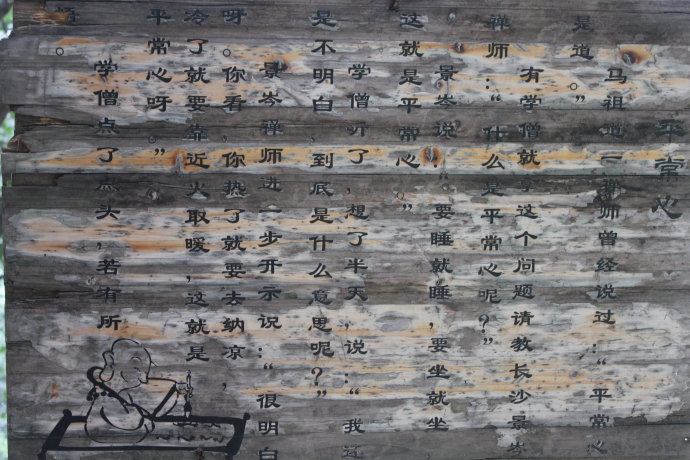 平常心
马祖道一禅师曾经说过:“平常心
是道。”
有学僧就这个问题请教长沙景岑
禅师:“什么是平常心呢?”
景岑说:“要睡就睡,要坐就坐
这就是平常心。”
学僧听了,想了半天,说:“我还
是不明白,到底是什么意思呢?”
景岑禅师进一步开示说:“很明白
呀。你看,你热了就要去纳凉,
冷了就要靠近火取暖,这就是
平常心呀。”
学僧点了点头,若有所
悟。